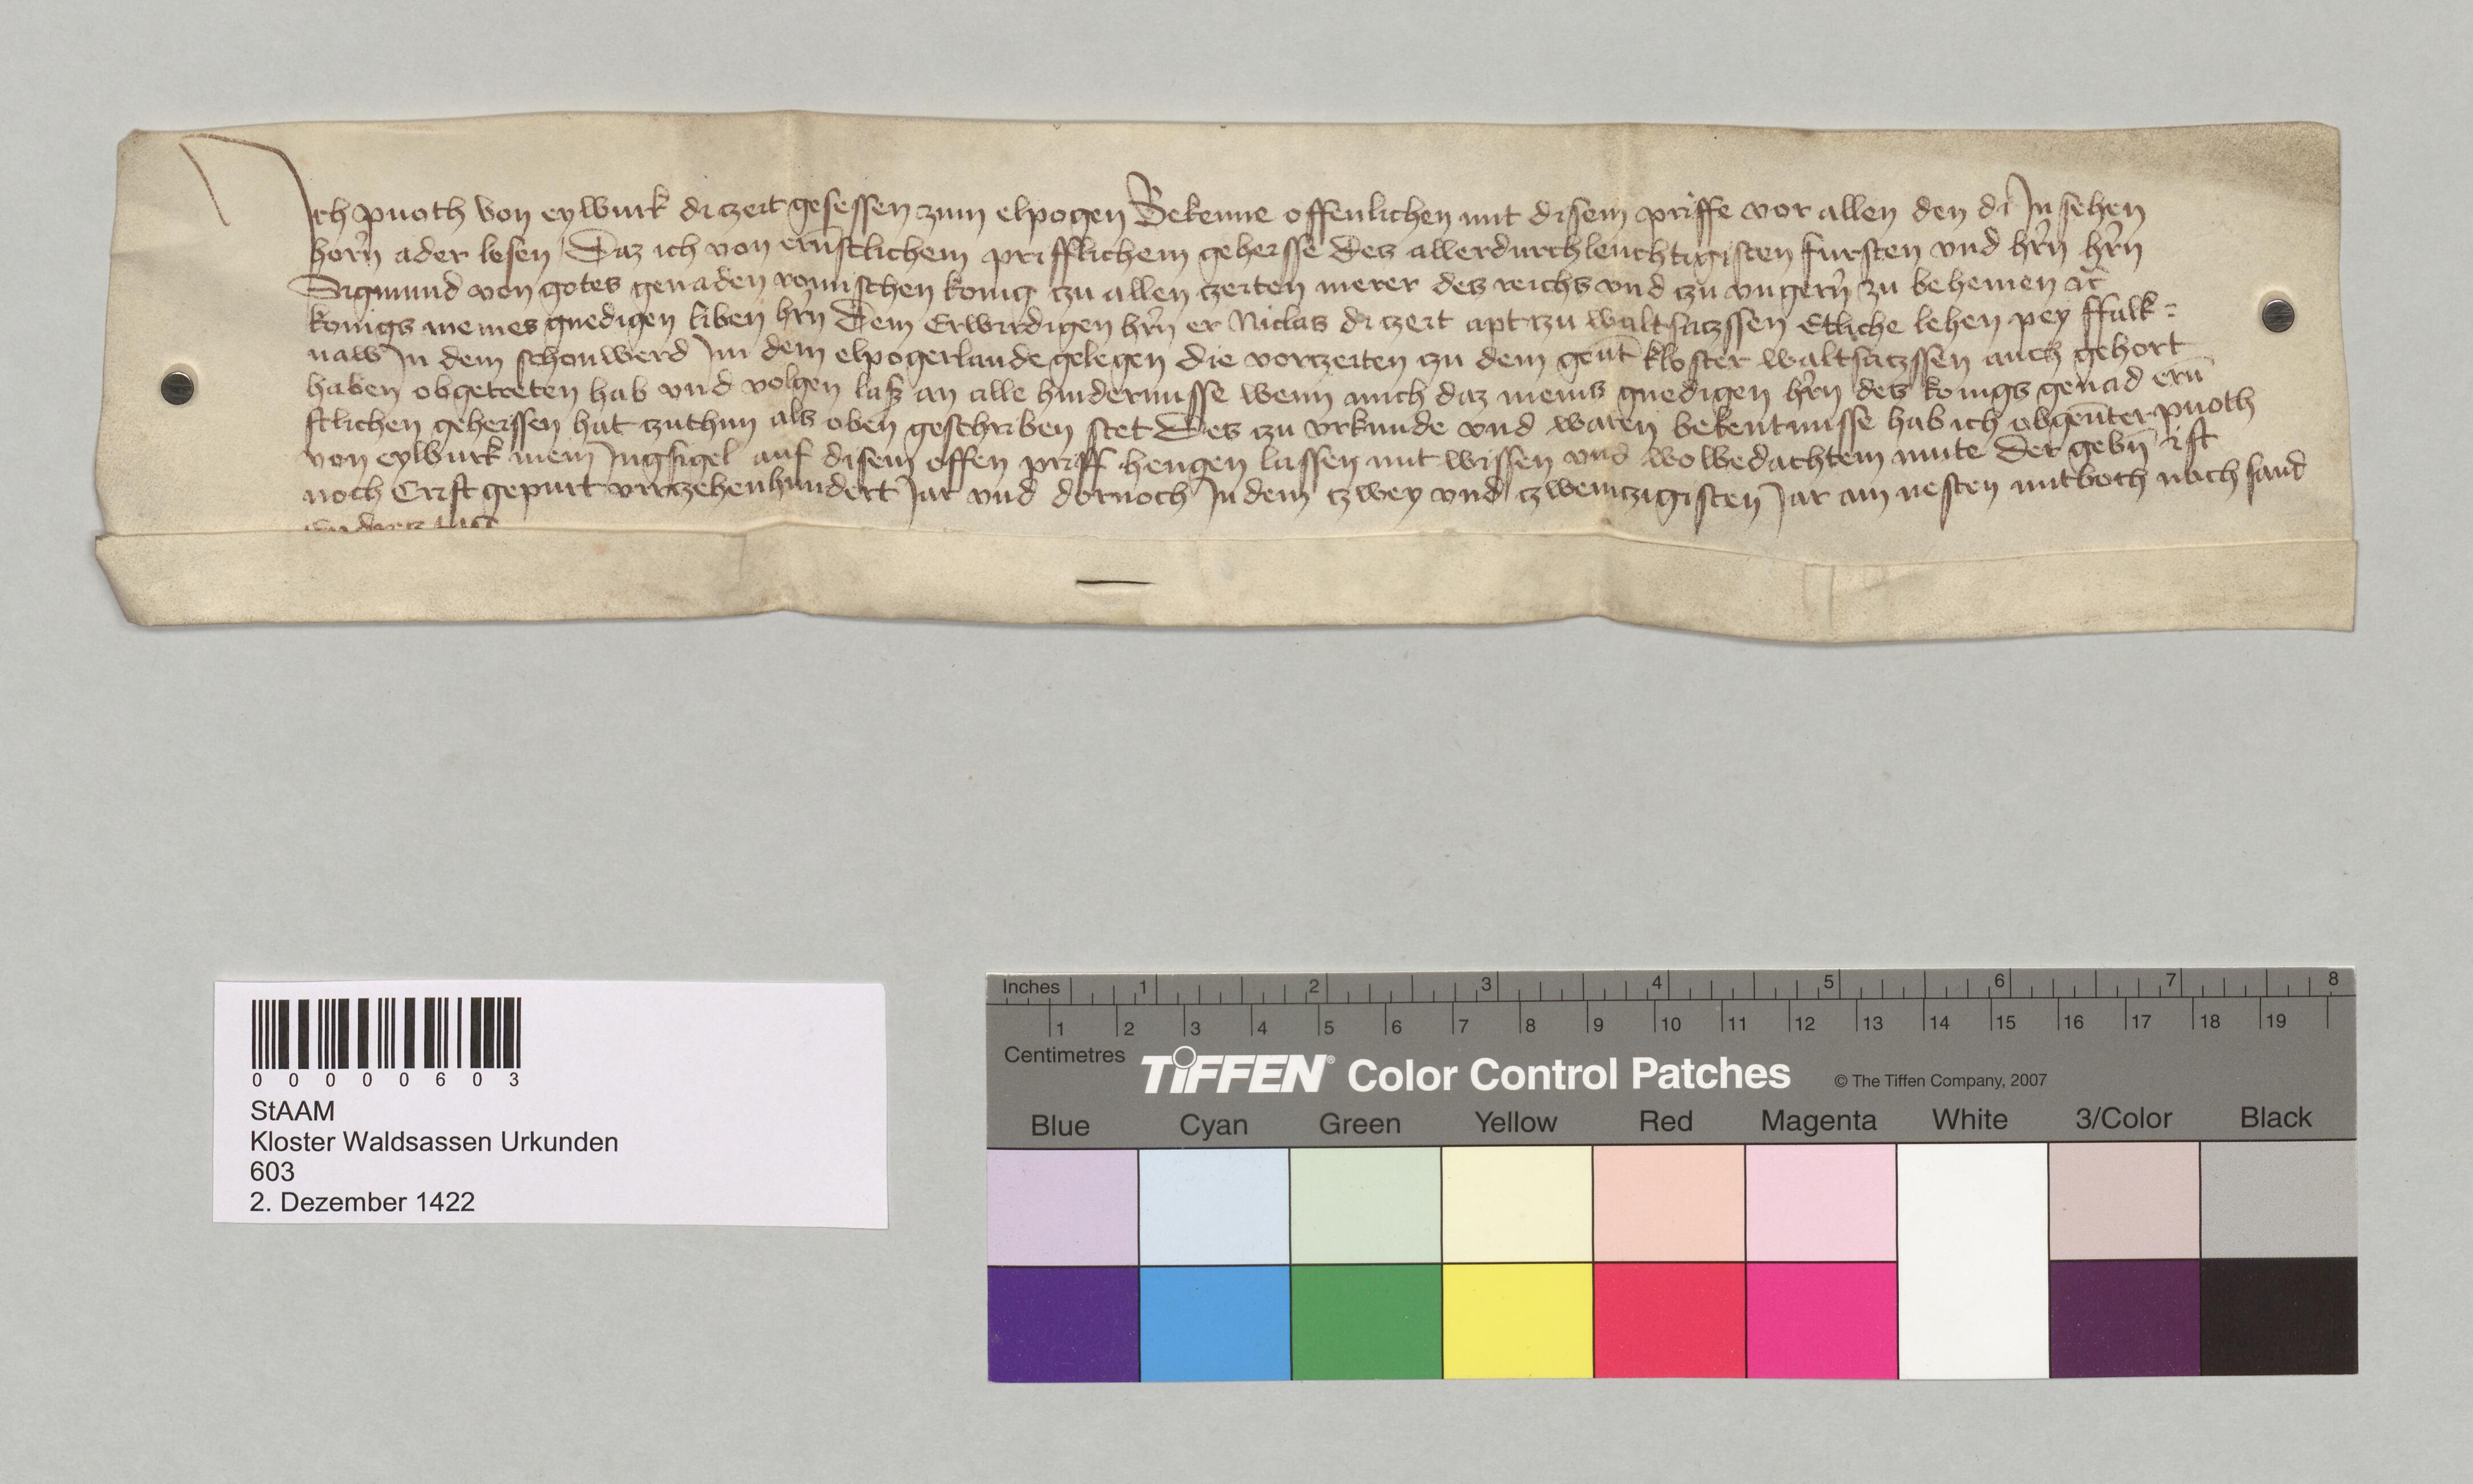 Ich puoth von eylburk di czeit gesessen zum elpogen Bekenne offenlichen mit disem priffe vor allen den di In sehen
horn̄ ader lesen Daz ich von ern̄stlichem prifflichem geheisse Des allerdurchleuchtigisten fursten vnd hr̄n hr̄n
Sigmund von gotes genaden romischen konig czu allen czeiten merer des reichs vnd czu vngern̄ zu behemen ꝛc̄
konigs meines gnedigen liben hr̄n Dem Erwirdigen hr̄n er Niclas di czeit apt czu waltsaczssen Etliche lehen pey ffalk=
naw In dem schonwerd Im dem elpogerlande gelegen die vorczeiten czu dem gen̄t kloster waltsaczssen auch gehort
haben obgetreten hab vnd volgen laß an alle hindernusse wenn mich daz meins gnedigen hr̄n des konigs genad ern̄
stlichen geheissen hat czuthun als oben geschriben stet Des czu vrkunde vnd waren bekentnusse hab ich obgen̄ter puoth
von eylburk mein Ingsigel auf disem offen priff hengen lassen mit wissen vnd wolbedachtem mute Der gebn̄ ist
noch Crist gepurt virczehenhundert Jar vnd dornoch In dem czwey vnd czwenczigisten Jar am nesten mitboch nach sand
andrez tage
0 0 0 0 0 6 0 3
StAAM
Kloster Waldsassen Urkunden
603
2. Dezember 1422
Inches 1 2 3 4 5 6 7 8
1 2 3 4 5 6 7 8 9 10 11 12 13 14 15 16 17 18 19
Centimetres
TIFFEN® Color Control Patches © The Tiffen Company, 2007
Blue Cyan Green Yellow Red Magenta White 3/Color Black